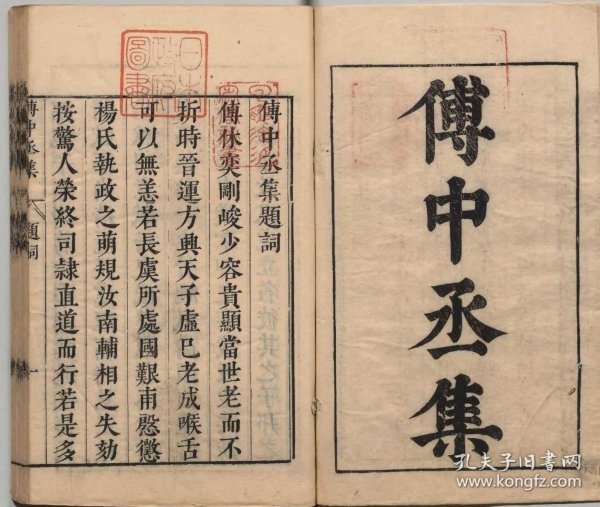 傅中丞集
傅中丞集題詞
傅休奕剛峻少容貴顯當世老而不
折時晉運方興天子虛巳老成喉舌
可以無恙若長虞所處國艱甫慇懲
楊氏執政之萌規汝南輔相之失劾
按驚人榮終司隷直道而行若是多
傅中丞集
題詞
一
日本
政府
圖書
孔夫子旧书网
www.kongfz.com